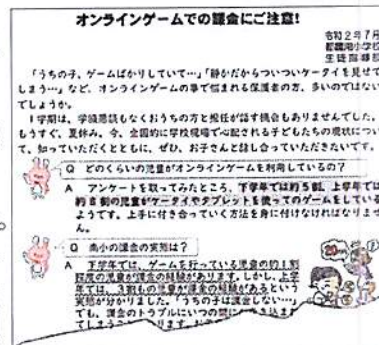 オンラインゲームでの課金にご注意!
令和2年7月
小学校
生徒指導部
「うちの子、ゲームばかりしていて…」「静かだからついついケータイを見せて
しまう…」など、オンラインゲームの事で悩まれる保護者の方、多いのではない
でしょうか。
1学期は、学級懇談もなくおうちの方と担任が話す機会もありませんでした。
もうすぐ、夏休み。今、全国的に学校現場で心配される子どもたちの現状につい
て、知っていただくとともに、ぜひ、お子さんと話し合っていただきたいです。
Q どのくらいの児童がオンラインゲームを利用しているの?
A アンケートを取ってみたところ、下学年では約5割、上学年では
約8割の児童がケータイやタブレットを使ってのゲームをしている
ようです。上手に付き合っていく方法を身に付けなければなりませ
ん。
Q 南小の課金の実態は?
A 下学年では、ゲームを行っている児童の約1割
程度の児童が課金の経験があります。しかし、上学
年では、3割もの児童が課金の経験があるという
実態が分かりました。「うちの子は課金しない…」
でも、課金のトラブルにいつの間に
てしまう